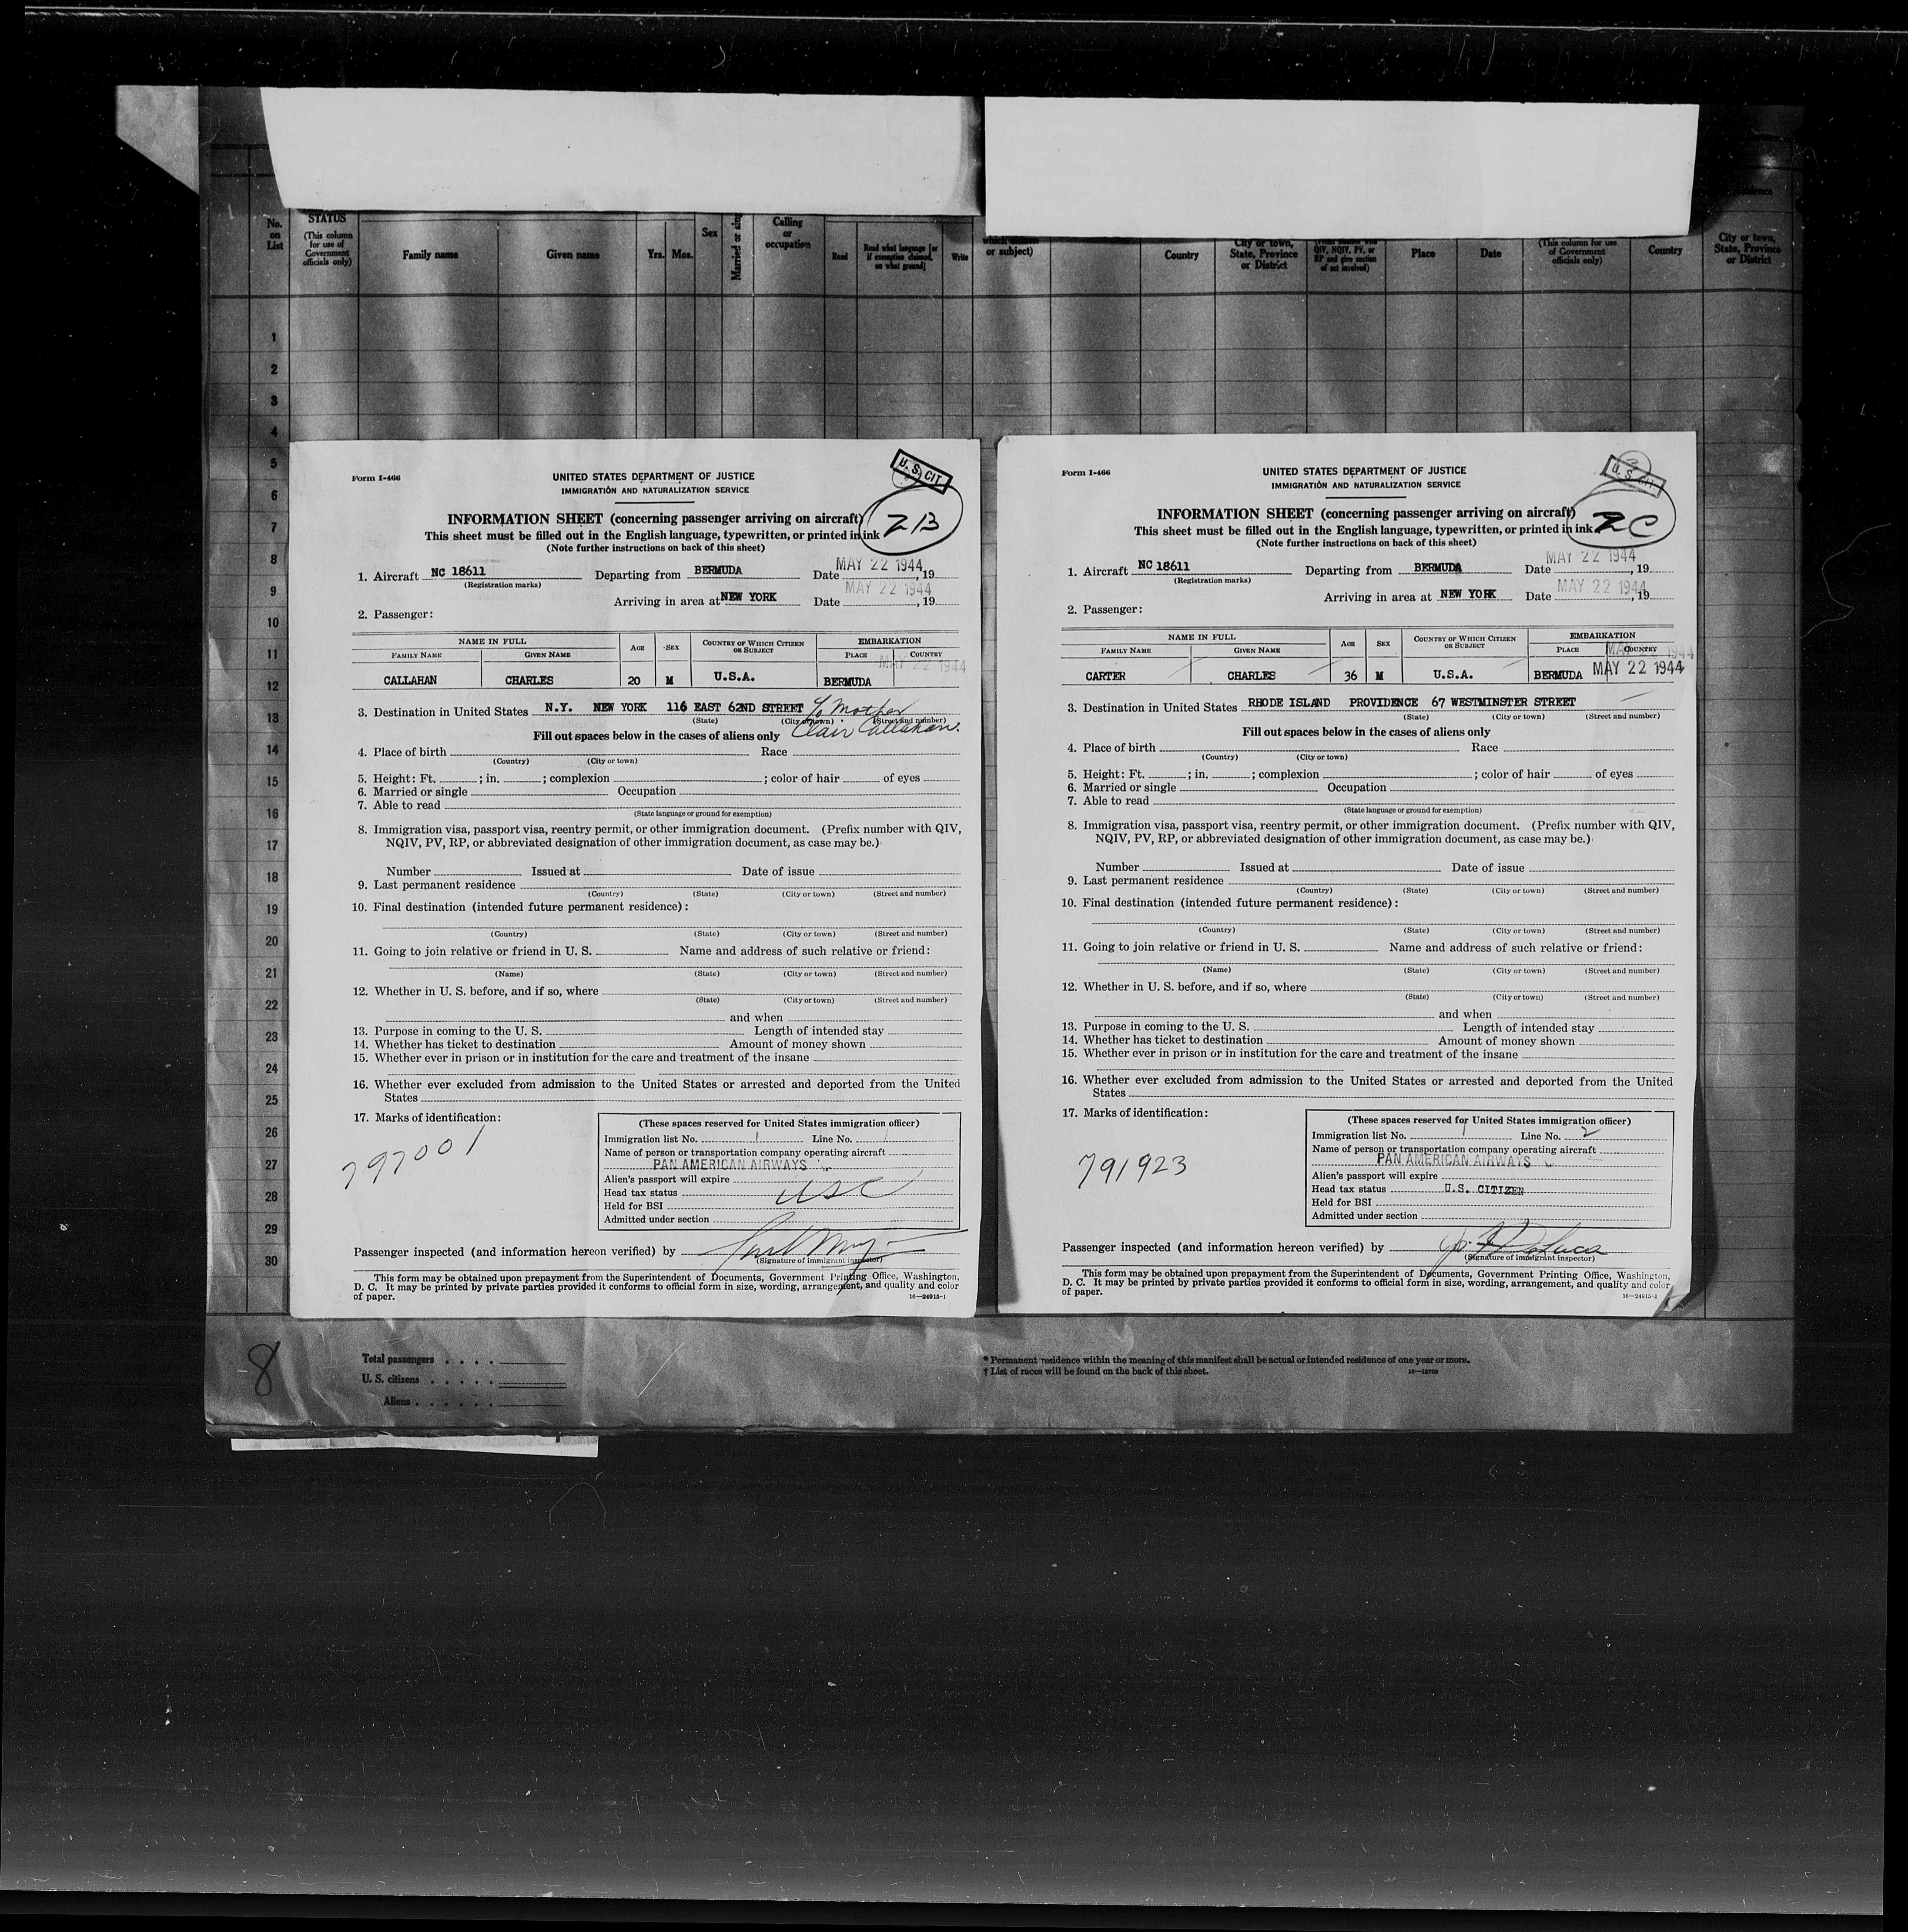 No. on List
STATUS
(This column for use of Government officials only)
Family name
Given name
Yrs.
Mos.
Sex
Married or
Calling or occupation
Read
Read what language [or if exemption claimed, on what ground]
Write
or subject)
Country
City or town, State, Province or District
QIV, NQIV, PV, or RP and give section of act involved)
Place
Date
(This column for use of Government officials only)
Country
City or town, State, Province or District
1
2
3
4
5
6
7
8
9
10
11
12
13
14
15
16
17
18
19
20
21
22
23
24
25
26
27
28
29
30
Form I-466
U. S. CIT
UNITED STATES DEPARTMENT OF JUSTICE
IMMIGRATION AND NATURALIZATION SERVICE
2B
INFORMATION SHEET (concerning passenger arriving on aircraft)
This sheet must be filled out in the English language, typewritten, or printed in ink
(Note further instructions on back of this sheet)
1. Aircraft NC 18611 Departing from BERMUDA Date MAY 22 1944, 19
(Registration marks)
Arriving in area at NEW YORK Date MAY 22 1944, 19
2. Passenger:
NAME IN FULL AGE SEX COUNTRY OF WHICH CITIZEN OR SUBJECT EMBARKATION
FAMILY NAME GIVEN NAME PLACE COUNTRY
MAY 22 1944
CALLAHAN CHARLES 20 M U.S.A. BERMUDA
3. Destination in United States N.Y. NEW YORK 116 EAST 62ND STREET Mother
(State) (City or town) (Street and number)
Clair Callahan.
Fill out spaces below in the cases of aliens only
4. Place of birth Race
(Country) (City or town)
5. Height: Ft. ; in. ; complexion ; color of hair of eyes
6. Married or single Occupation
7. Able to read
(State language or ground for exemption)
8. Immigration visa, passport visa, reentry permit, or other immigration document. (Prefix number with QIV,
NQIV, PV, RP, or abbreviated designation of other immigration document, as case may be.)
Number Issued at Date of issue
9. Last permanent residence
(Country) (State) (City or town) (Street and number)
10. Final destination (intended future permanent residence):
(Country) (State) (City or town) (Street and number)
11. Going to join relative or friend in U. S. Name and address of such relative or friend:
(Name) (State) (City or town) (Street and number)
12. Whether in U. S. before, and if so, where
(State) (City or town) (Street and number)
and when
13. Purpose in coming to the U. S. Length of intended stay
14. Whether has ticket to destination Amount of money shown
15. Whether ever in prison or in institution for the care and treatment of the insane
16. Whether ever excluded from admission to the United States or arrested and deported from the United
States
17. Marks of identification:
797001
(These spaces reserved for United States immigration officer)
Immigration list No. 1 Line No. 1
Name of person or transportation company operating aircraft
PAN AMERICAN AIRWAYS
Alien's passport will expire
Head tax status USC
Held for BSI
Admitted under section
Passenger inspected (and information hereon verified) by
(Signature of immigrant inspector)
This form may be obtained upon prepayment from the Superintendent of Documents, Government Printing Office, Washington,
D. C. It may be printed by private parties provided it conforms to official form in size, wording, arrangement, and quality and color
of paper.
16—24915-1
Form I-466
U. S. CIT.
UNITED STATES DEPARTMENT OF JUSTICE
IMMIGRATION AND NATURALIZATION SERVICE
2C
INFORMATION SHEET (concerning passenger arriving on aircraft)
This sheet must be filled out in the English language, typewritten, or printed in ink
(Note further instructions on back of this sheet)
1. Aircraft NC 18611 Departing from BERMUDA Date MAY 22 1944, 19
(Registration marks)
Arriving in area at NEW YORK Date MAY 22 1944, 19
2. Passenger:
NAME IN FULL AGE SEX COUNTRY OF WHICH CITIZEN OR SUBJECT EMBARKATION
FAMILY NAME GIVEN NAME PLACE COUNTRY
MAY 22 1944
CARTER CHARLES 36 M U.S.A. BERMUDA MAY 22 1944
3. Destination in United States RHODE ISLAND PROVIDENCE 67 WESTMINSTER STREET
(State) (City or town) (Street and number)
Fill out spaces below in the cases of aliens only
4. Place of birth Race
(Country) (City or town)
5. Height: Ft. ; in. ; complexion ; color of hair of eyes
6. Married or single Occupation
7. Able to read
(State language or ground for exemption)
8. Immigration visa, passport visa, reentry permit, or other immigration document. (Prefix number with QIV,
NQIV, PV, RP, or abbreviated designation of other immigration document, as case may be.)
Number Issued at Date of issue
9. Last permanent residence
(Country) (State) (City or town) (Street and number)
10. Final destination (intended future permanent residence):
(Country) (State) (City or town) (Street and number)
11. Going to join relative or friend in U. S. Name and address of such relative or friend:
(Name) (State) (City or town) (Street and number)
12. Whether in U. S. before, and if so, where
(State) (City or town) (Street and number)
and when
13. Purpose in coming to the U. S. Length of intended stay
14. Whether has ticket to destination Amount of money shown
15. Whether ever in prison or in institution for the care and treatment of the insane
16. Whether ever excluded from admission to the United States or arrested and deported from the United
States
17. Marks of identification:
791923
(These spaces reserved for United States immigration officer)
Immigration list No. 1 Line No. 2
Name of person or transportation company operating aircraft
PAN AMERICAN AIRWAYS
Alien's passport will expire
Head tax status U.S. CITIZEN
Held for BSI
Admitted under section
Passenger inspected (and information hereon verified) by
(Signature of immigrant inspector)
This form may be obtained upon prepayment from the Superintendent of Documents, Government Printing Office, Washington,
D. C. It may be printed by private parties provided it conforms to official form in size, wording, arrangement, and quality and color
of paper.
16—24915-1
8
Total passengers
U. S. citizens
Aliens
* Permanent residence within the meaning of this manifest shall be actual or intended residence of one year or more.
† List of races will be found on the back of this sheet.